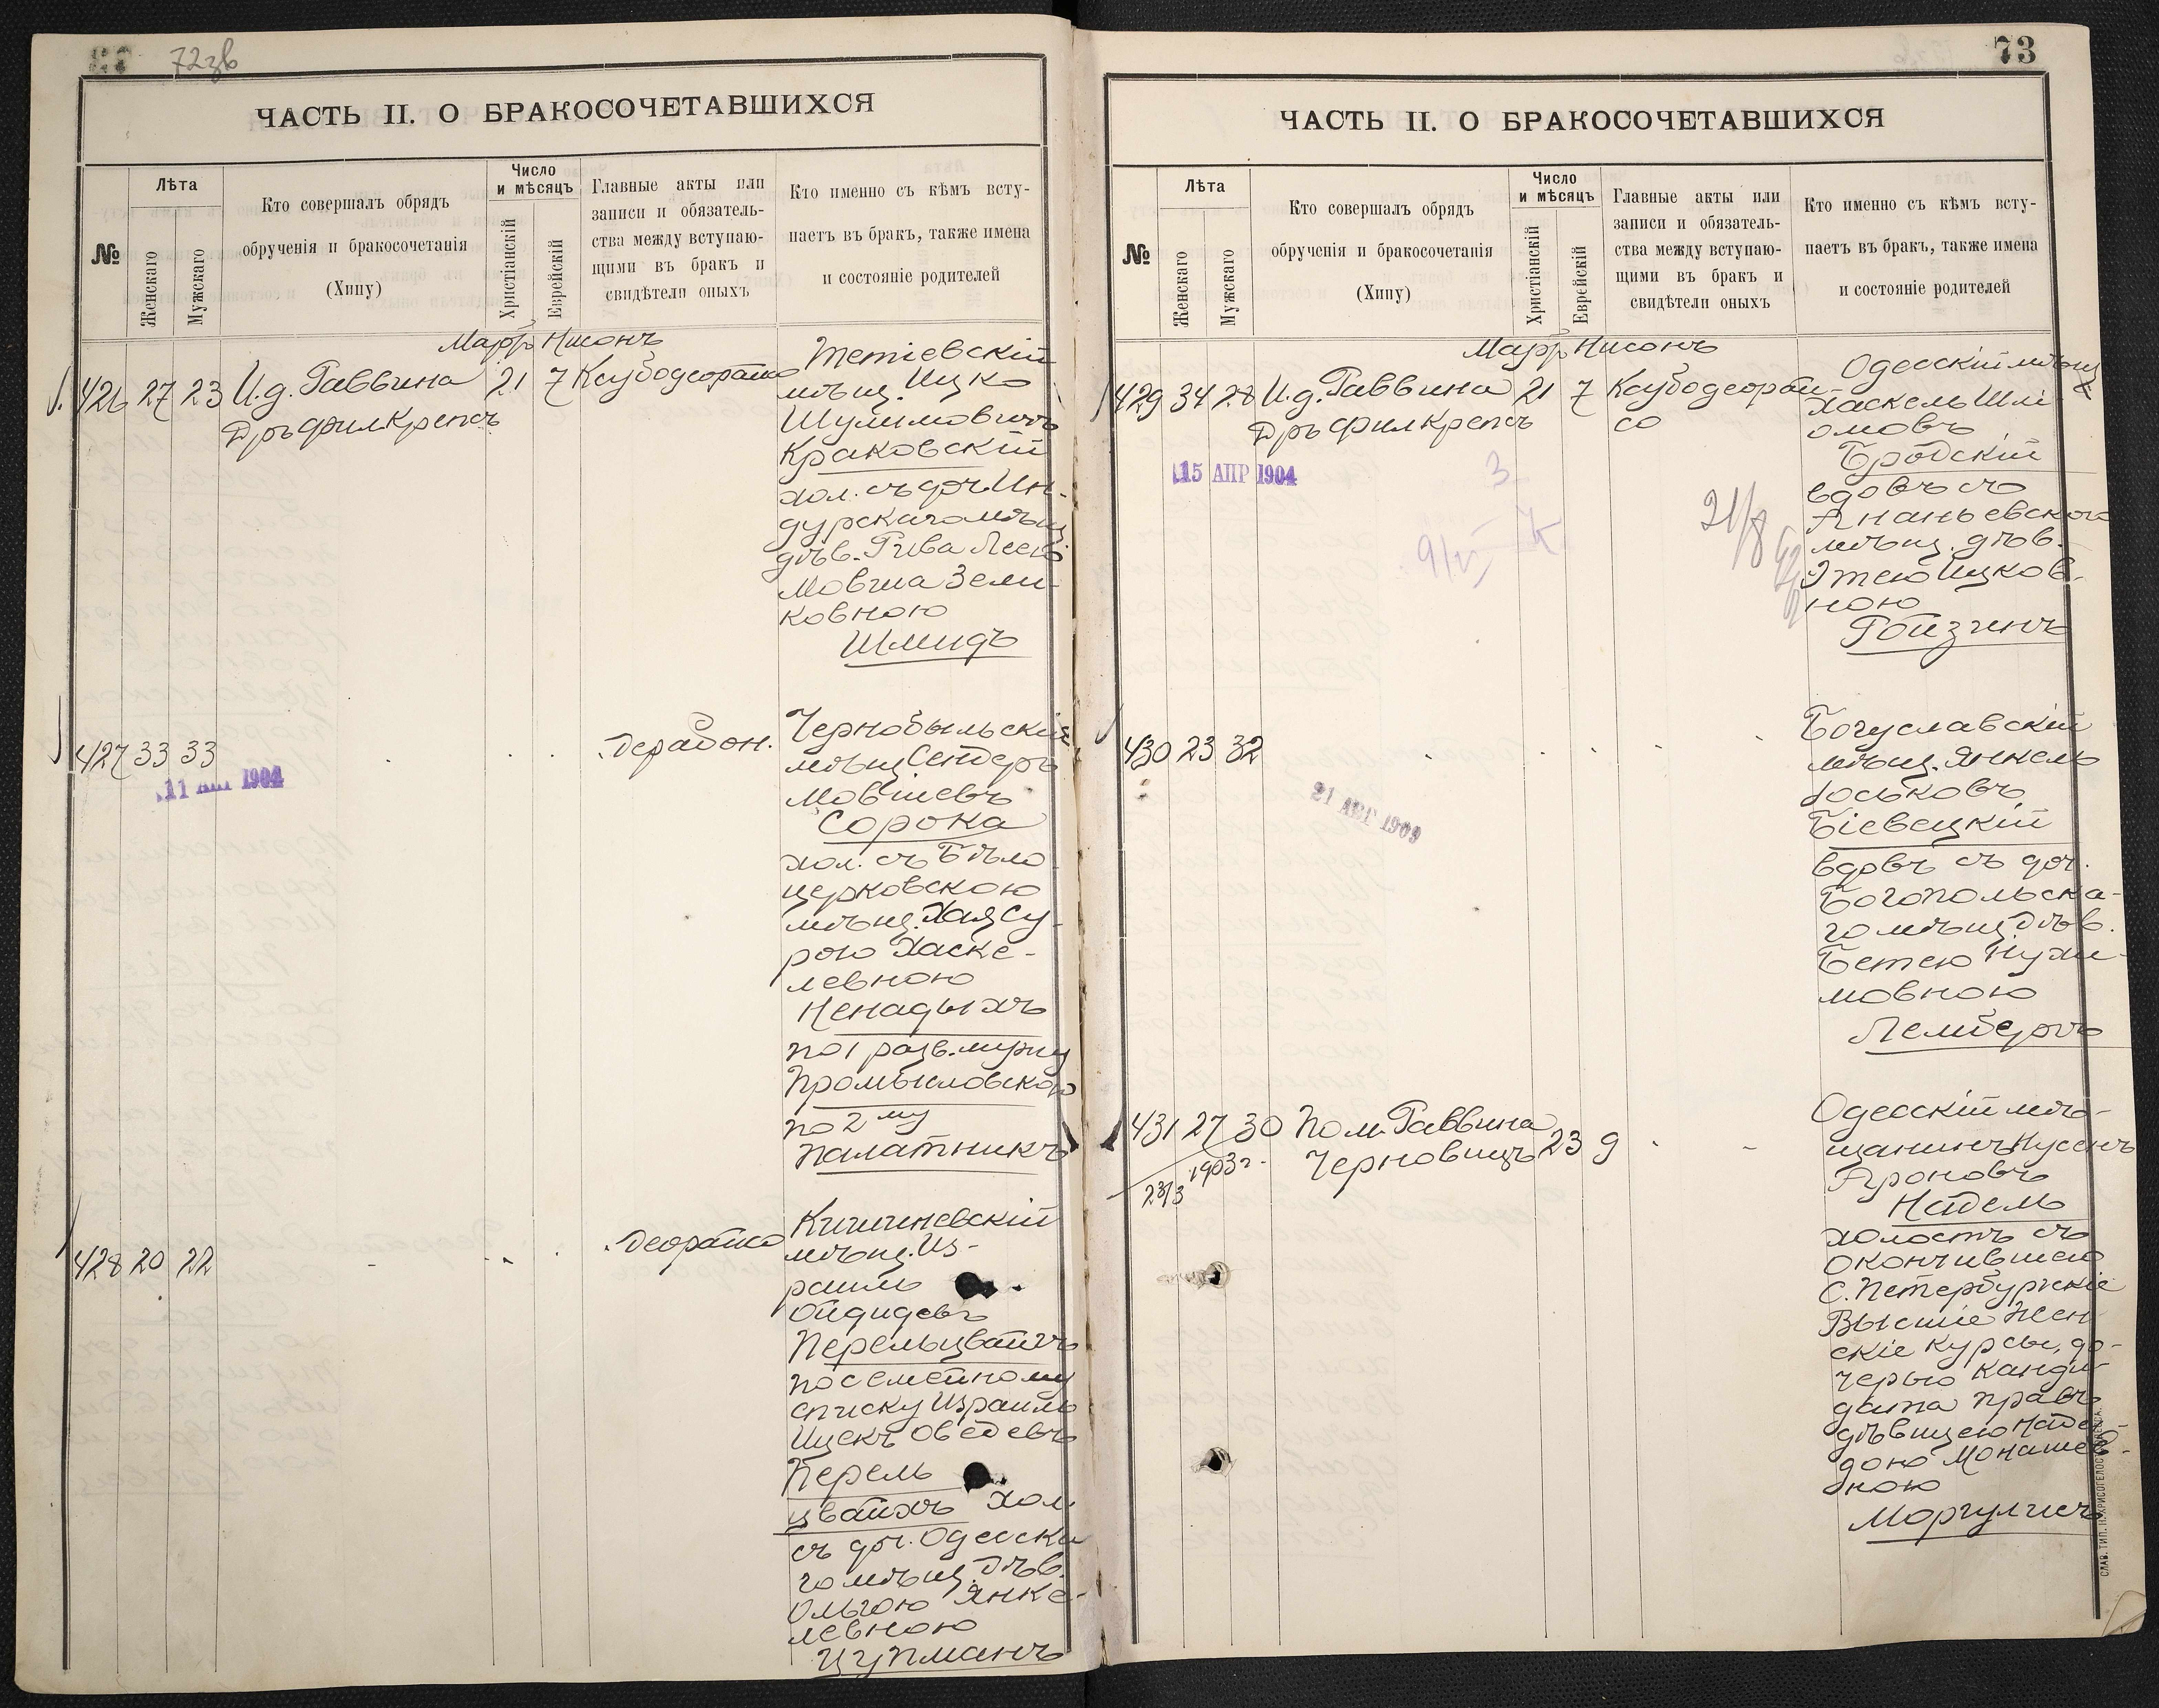 72зв
ЧАСТЬ II. О БРАКОСОЧЕТАВШИХСЯ
№
Лѣта
Женскаго
Мужскаго
Кто совершалъ обрядъ
обрученія и бракосочетанія
(Хипу)
Число
и мѣсяцъ
Христіанскій
Еврейскій
Главные акты или
записи и обязатель-
ства между вступаю-
щими въ бракъ и
свидѣтели оныхъ
Кто именно съ кѣмъ всту-
паетъ въ бракъ, также имена
и состояніе родителей
Мартъ Нисонъ
426 27 23 И.д. Раввина 21 7
Дръ Фил Крепсъ
Тетіевскій
мѣщ. Ицко
Шулимовичъ
Краковскій
хол. съ доч. Ин-
дурскаго мѣщ
дѣв. Рива Лея
Мовша Зели-
ковною
Шмидъ
427 33 33
11 АПР 1904
Чернобыльскій
мѣщ Сендеръ
Мовшевъ
Сорока
хол. съ Бѣло
церковскою
мѣщ. Хая Су-
рою Хаске-
левною
Ненадыхъ
по 1 разв. мужу
Промысловскою
по 2му
Палатникъ
428 20 22
Кишиневскій
мѣщ. Из-
раиль
Ойдидевъ
Перельцвайгъ
по семейному
списку Израиль
Ицекъ Оведевъ
Перель
цвайхъ хол
съ доч. Одесска
го мѣщ. дѣв.
Ольгою Янке-
левною
Цупманъ
73
ЧАСТЬ II. О БРАКОСОЧЕТАВШИХСЯ
№
Лѣта
Женскаго
Мужскаго
Кто совершалъ обрядъ
обрученія и бракосочетанія
(Хипу)
Число
и мѣсяцъ
Христіанскій
Еврейскій
Главные акты или
записи и обязатель-
ства между вступаю-
щими въ бракъ и
свидѣтели оныхъ
Кто именно съ кѣмъ всту-
паетъ въ бракъ, также имена
и состояніе родителей
Мартъ Нисонъ
429 34 28 И.д. Раввина 21 7
Дръ Фил Крепсъ
15 АПР 1904
21/8
Одесскій мѣщ
Хаскель Шлі
омовъ
Бродскій
вдовъ съ
Ананьевскою
мѣщ. дѣв.
Этею Ицков-
ною
Ройзгинъ
430 23 32
21 АВГ 1909
Богуславскій
мѣщ. Янкель
Іоськовъ
Біевецкій
вдовъ съ доч.
Богопольска-
го мѣщ дѣв.
Бетею Нухи-
мовною
Лембергъ
431 27 30 Пом. Раввина 23 9
Черновицъ
1903 г.
23/3
Одесскій мѣ-
щанинъ Нусенъ
Ароновъ
Найдель
холостъ съ
окончившею
С. Петербургскіе
Высшіе Жен
скіе курсы, до-
черью канди-
дата правъ
дѣвицею Наде
дою Монашев-
ною
Моргулисъ
СЛАВ. ТИП. Н. ХРИСОГЕЛОСЪ, ОДЕССА.